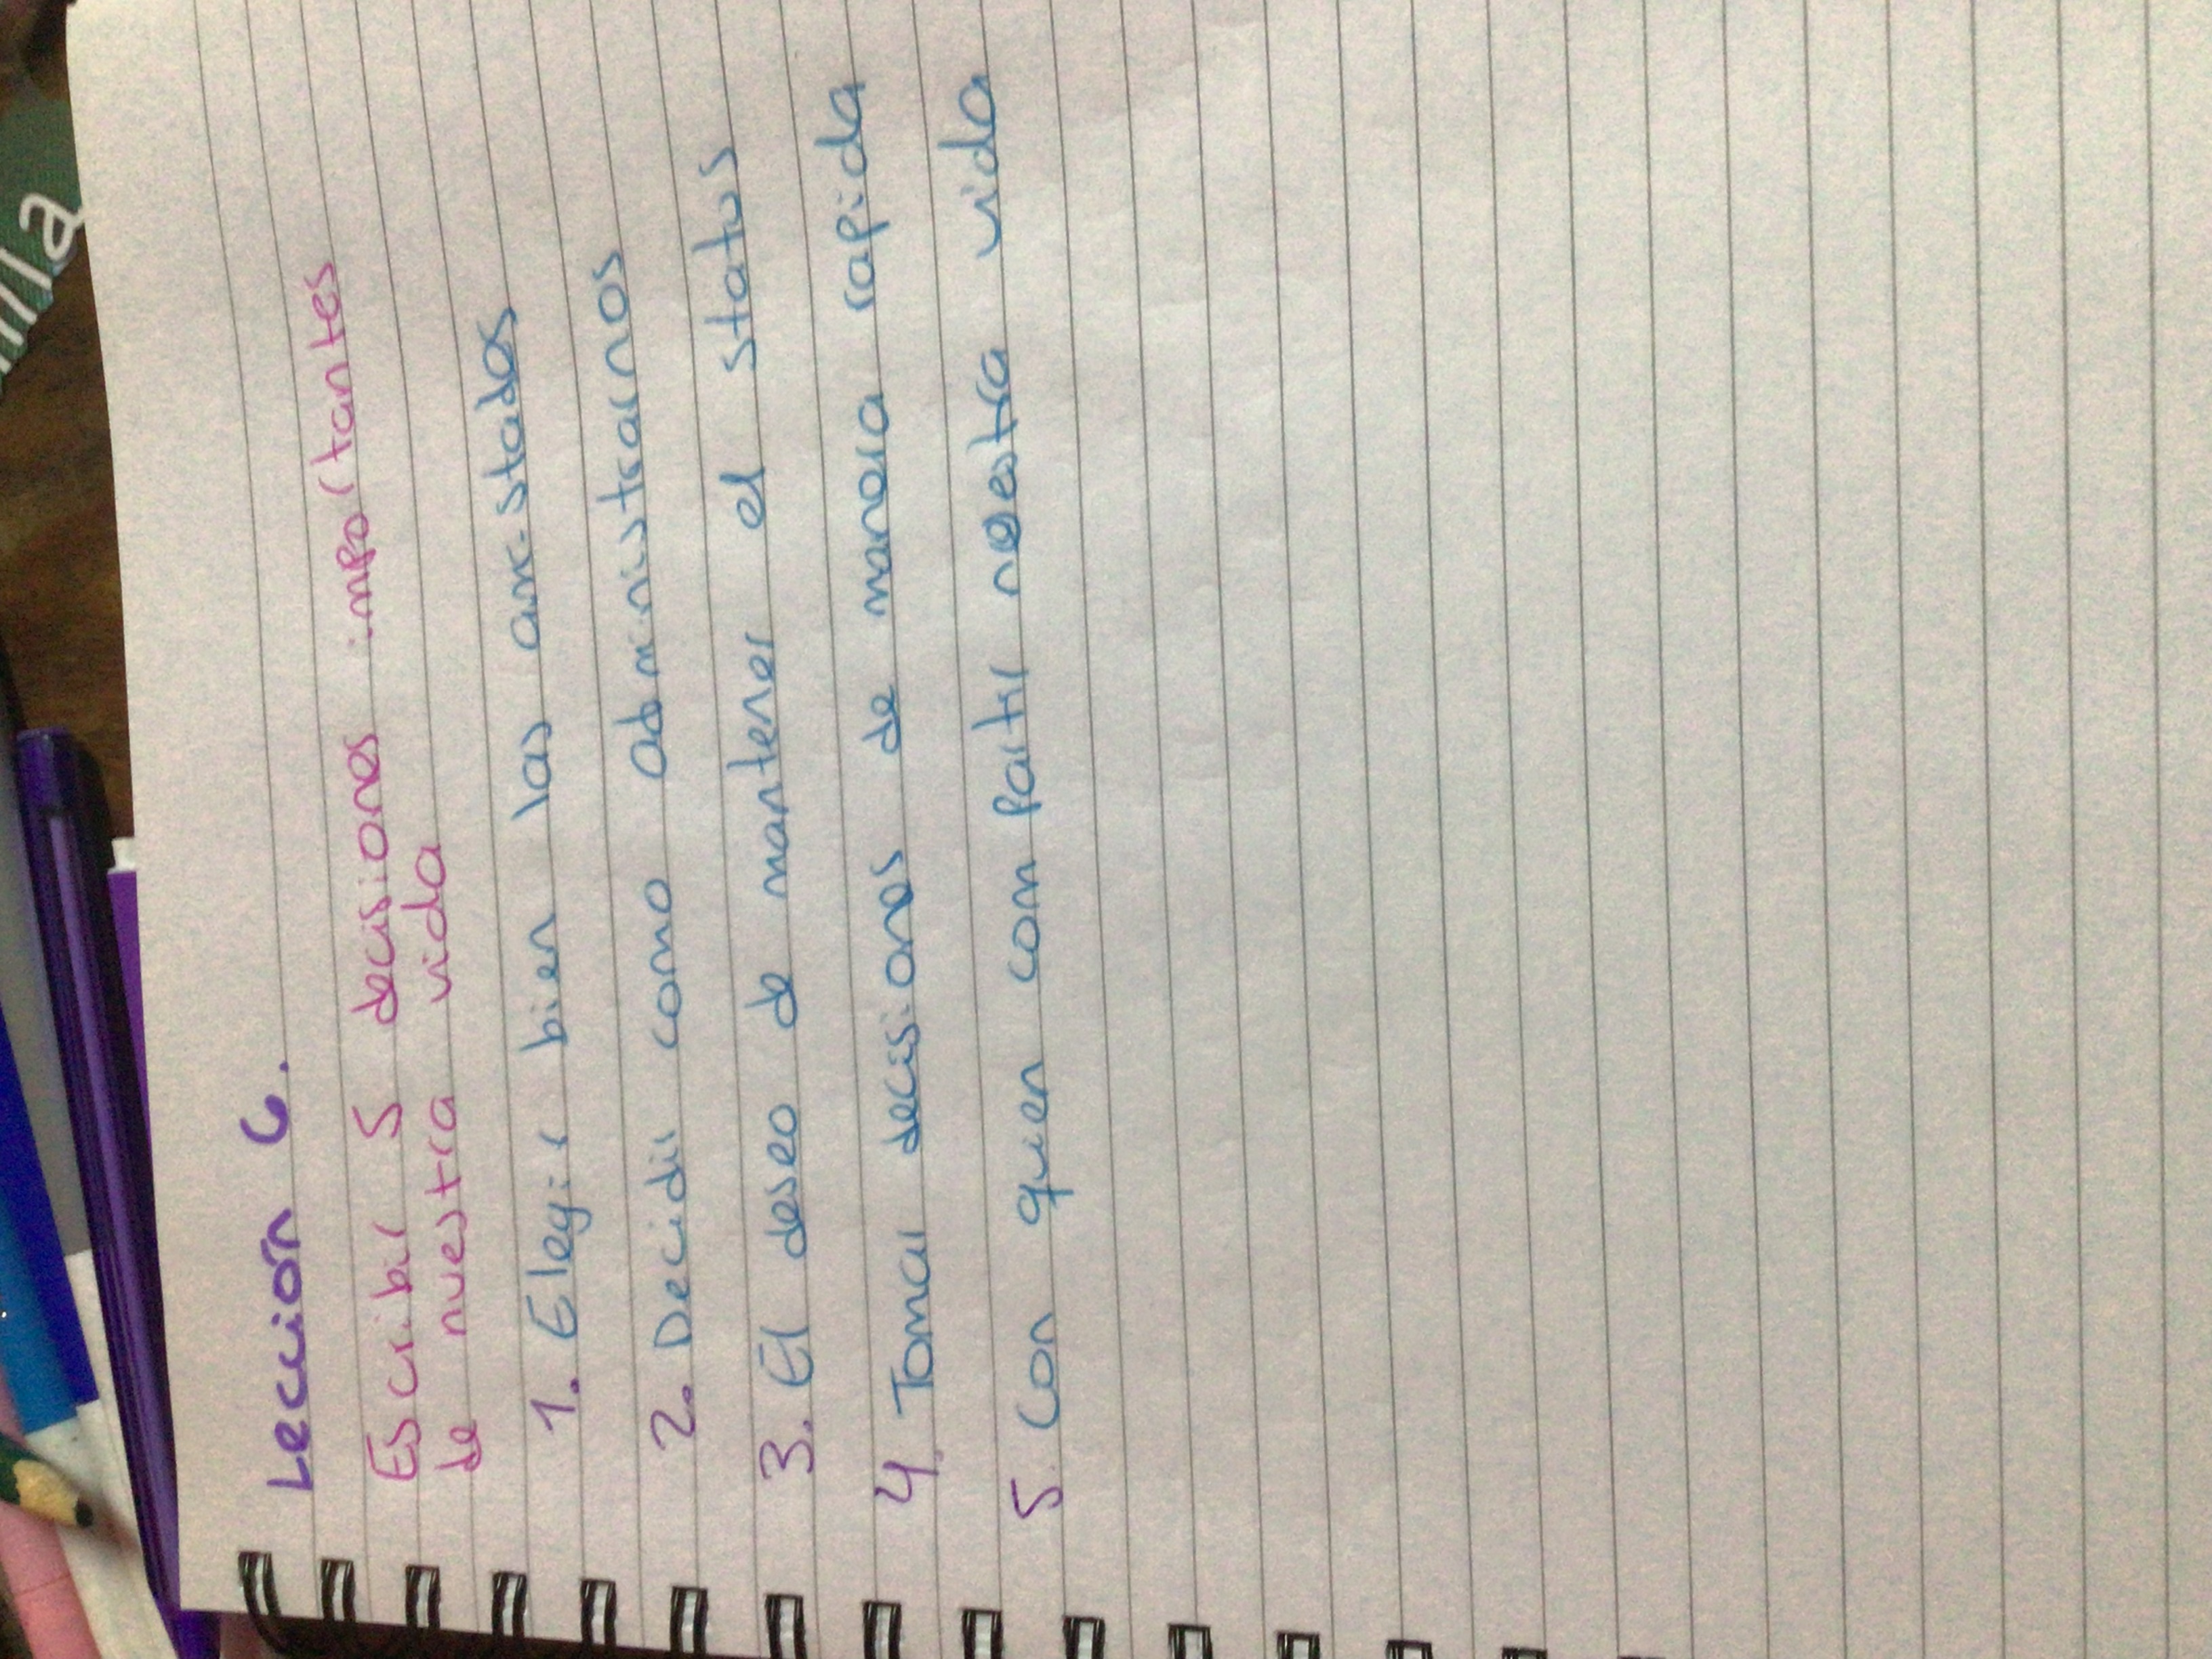 Lección 6.
Escribir 5 decisiones importantes
de nuestra vida
1. Elegir bien las amistades
2. Decidir como administrarnos
3. El deseo de mantener el status
4. Tomar decisiones de manera rapida
5. Con quien compartir nuestra vida